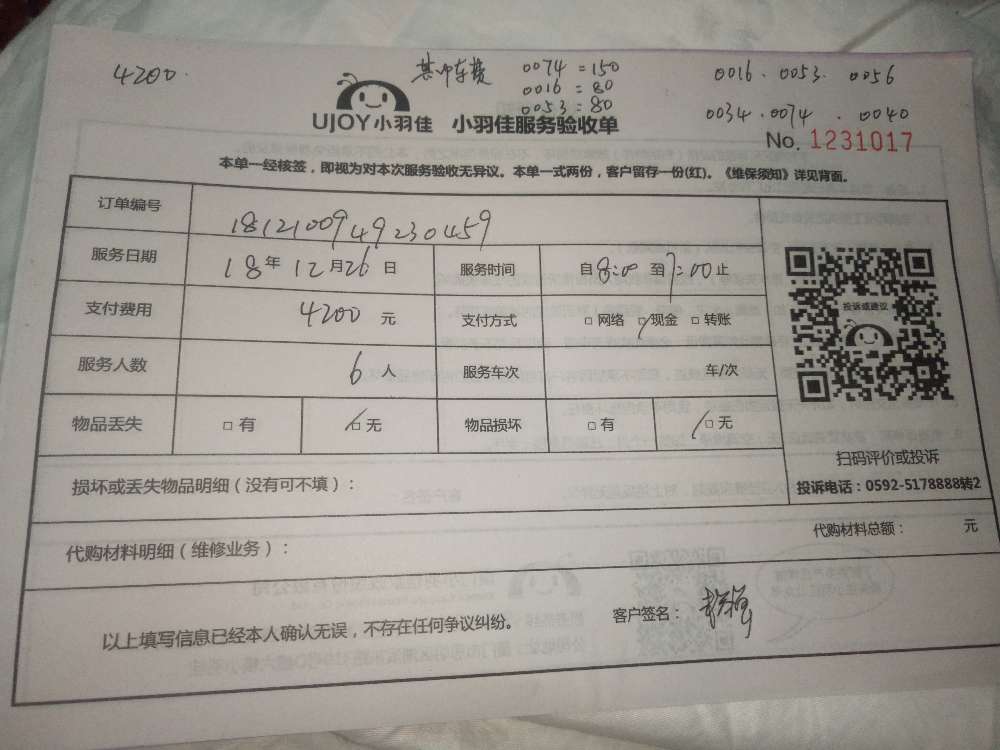 4200.
其中车接 0074=150
0016=80
0053=80
0016.0053.0056
0034.0074.0040
UJOY小羽佳 小羽佳服务验收单
No. 1231017
本单一经核签，即视为对本次服务验收无异议。本单一式两份，客户留存一份(红)。《维保须知》详见背面。
订单编号 1812100949230459
服务日期 18年12月26日 服务时间 自8:00至7:00止
支付费用 4200元 支付方式 □网络 □现金 □转账
服务人数 6人 服务车次 车/次
物品丢失 □有 □无 物品损坏 □有 □无
投诉或建议
扫码评价或投诉
投诉电话：0592-5178888转2
损坏或丢失物品明细（没有可不填）：
代购材料明细（维修业务）： 代购材料总额： 元
以上填写信息已经本人确认无误，不存在任何争议纠纷。 客户签名：